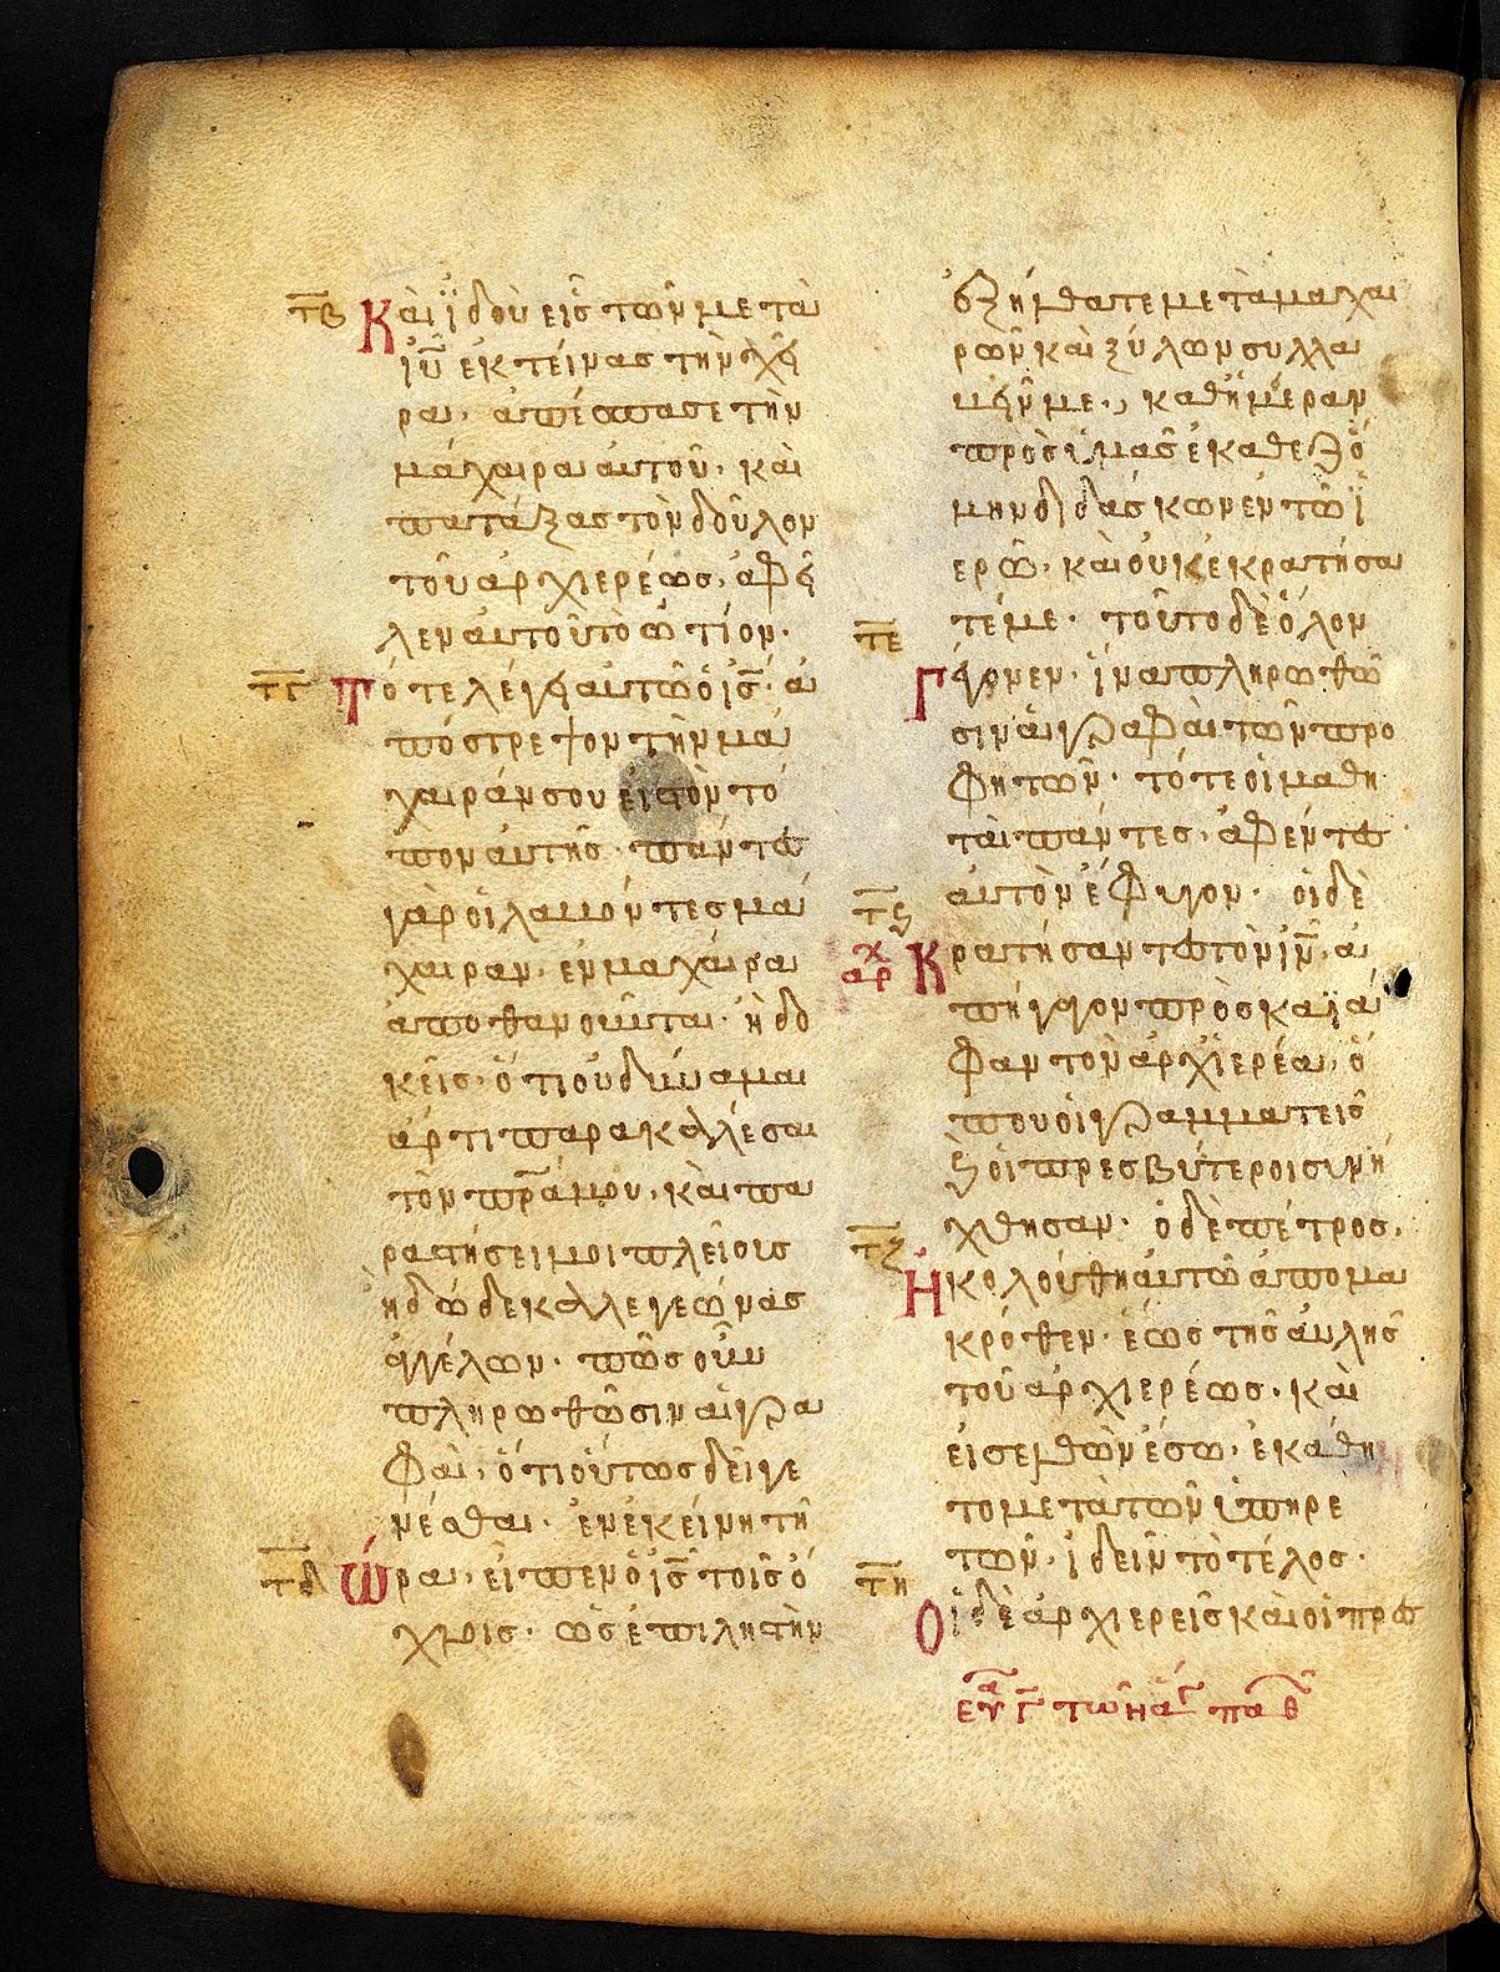 τβ Καὶ ϊδοὺ εἷς τῶν μετὰ
ιῡ ἐκτείνας τὴν χεῖ
ρα, ἀπέσπασε τὴν
μάχαιραν αὐτοῦ· καὶ
πατάξας τὸν δοῦλον
τοῦ ἀρχιερέως, ἀφεῖ
λεν αὐτοῦ τὸ ὠτίον·
τγ Τότε λέγει αὐτῶ ὁ ις̄· ἀ
πόστρεψον τὴν μά
χαιράν σου εἰς τὸν τό
πον αὐτῆς· πάντες
γὰρ οἱ λαβόντες μά
χαιραν, ἐν μαχαίρα
ἀποθανοῦνται· ἢ δο
κεῖς, ὅτι οὐ δύναμαι
ἄρτι παρακαλέσαι
τὸν πρ̄α μου, καὶ πα
ραστήσει μοι πλείους
ἢ δώδεκα λεγεώνας
ἀγγέλων· πῶς οὖν
πληρωθῶσιν αἱ γρα
φαί, ὅτι οὕτως δεῖ γε
νέσθαι· ἐν ἐκείνη τῆ
τδ Ὥρα, εἶπεν ὁ ις̄ τοῖς ὄ
χλοις· ὡς ἐπὶ ληστὴν
ἐξήλθατε μετὰ μαχαι
ρῶν καὶ ξύλων συλλα
βεῖν με., καθημέραν
πρὸς ὑμᾶς ἐκαθεζό
μην διδάσκων ἐν τῶ ϊ
ερῶ· καὶ οὐκ ἐκρατήσα
τέ με· τοῦτο δὲ ὅλον
τε Γέγονεν· ἵνα πληρωθῶ
σιν αἱ γραφαὶ τῶν προ
φητῶν· τότε οἱ μαθη
ταὶ πάντες, ἀφέντες
αὐτὸν ἔφυγον· οἱ δὲ
τϛ αρχ Κρατήσαντες τὸν ιν̄, ἀ
πήγαγον πρὸς καϊά
φαν τὸν ἀρχϊερέα, ὅ
που οἱ γραμματεῖς
ϗ οἱ πρεσβύτεροι συνή
χθησαν· ὁ δὲ πέτρος,
τζ Ἠκολούθη αὐτῶ ἀπὸ μα
κρόθεν· ἕως τῆς αὐλῆς
τοῦ ἀρχιερέως· καὶ
εἰσελθὼν ἔσω, ἐκάθη
το μετὰ τῶν ὑπηρε
τῶν, ἰδεῖν τὸ τέλος·
τη Οἱ δὲ ἀρχιερεῖς καὶ οἱ πρεσ
ευα γ τῶν ἁγ παθ